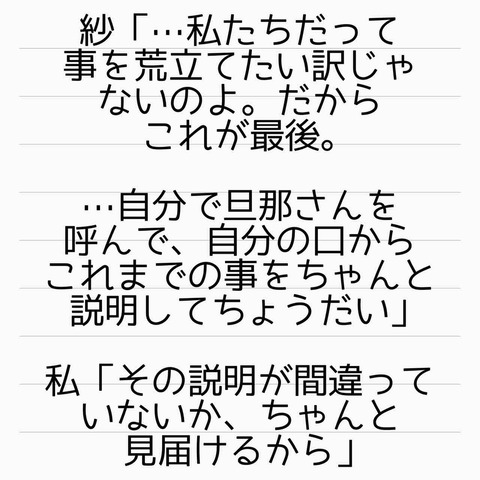 紗「…私たちだって
事を荒立てたい訳じゃ
ないのよ。だから
これが最後。
…自分で旦那さんを
呼んで、自分の口から
これまでの事をちゃんと
説明してちょうだい」
私「その説明が間違って
いないか、ちゃんと
見届けるから」